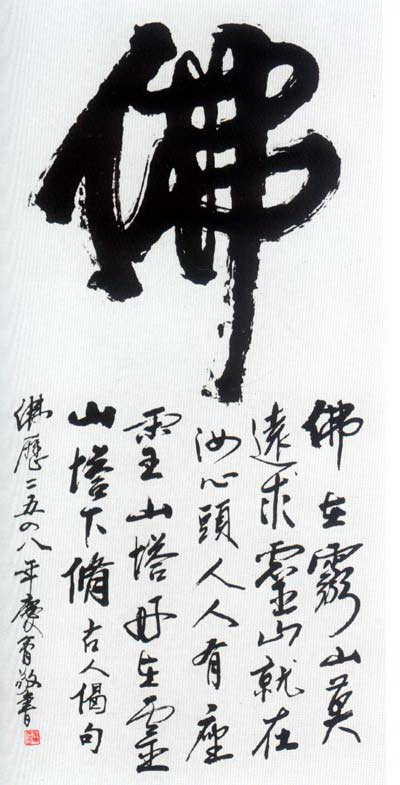 佛
佛在靈山莫
遠求靈山就在
汝心頭人人有座
靈山塔好在靈
山塔下脩古人偈句
佛曆二五四八年敬書